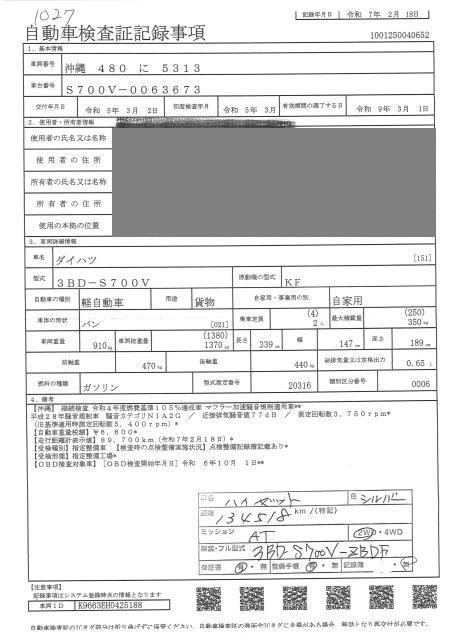 1027
記録年月日 令和 7年 2月 18日
自動車検査証記録事項
1001250040652
1. 基本情報
車両番号 沖縄 480 に 5313
車台番号 S700V-0063673
交付年月日 令和 5年 3月 2日 初度検査年月 令和 5年 3月 有効期間の満了する日 令和 9年 3月 1日
2. 使用者・所有者情報
使用者の氏名又は名称
使用者の住所
所有者の氏名又は名称
所有者の住所
使用の本拠の位置
3. 車両詳細情報
車名 ダイハツ [151]
型式 3BD-S700V 原動機の型式 KF
自動車の種別 軽自動車 用途 貨物 自家用・事業用の別 自家用
車体の形状 バン [021] 乗車定員 (4) 2人 最大積載量 (250) 350kg
車両重量 910kg 車両総重量 (1380) 1370kg 長さ 339cm 幅 147cm 高さ 189cm
前軸重 470kg 後軸重 440kg 総排気量又は定格出力 0.65L
燃料の種類 ガソリン 型式指定番号 20316 類別区分番号 0006
4. 備考
【沖縄】 継続検査 令和4年度燃費基準105%達成車 マフラー加速騒音規制適用車**
平成28年騒音規制車 騒音カテゴリN1A2G / 近接排気騒音値77dB / 測定回転数3,750rpm*
(旧基準適用時測定回転数5,400rpm)*
【自動車重量税額】¥6,600*
【走行距離計表示値】89,700km(令和7年2月18日)*
【受検種別】指定整備車 【検査時の点検整備実施状況】点検整備記録簿記載あり*
【受検形態】指定整備工場*
【OBD検査対象車】[OBD検査開始年月日]令和 6年10月 1日**
車名 ハイゼット 色 シルバー
距離 134518 km/(特記)
ミッション AT 2WD・4WD
架装・フル型式 3BD-S700V-ZBDF
保証書 有・無 整備手帳 有・無 記録簿 ・無
【注意事項】
記載事項はシステム登録時点の情報となります
車両ID K9663EH0425188